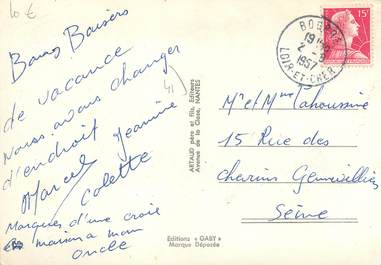 10 €
Bons Baisers
de vacance
Nous avons changer
d'endroit Jeannine
Marcel
Colette
Marquer d'une croix
la maison a mon
oncle
41
ARTAUD père et Fils, Editeurs
Avenue de la Close, NANTES
Editions « GABY »
Marque Déposée
19
2 - 8
1957
LOIR-ET-CHER
15F
Mr et Mme Lahoussine
15 Rue des
Gennevilliers
Seine